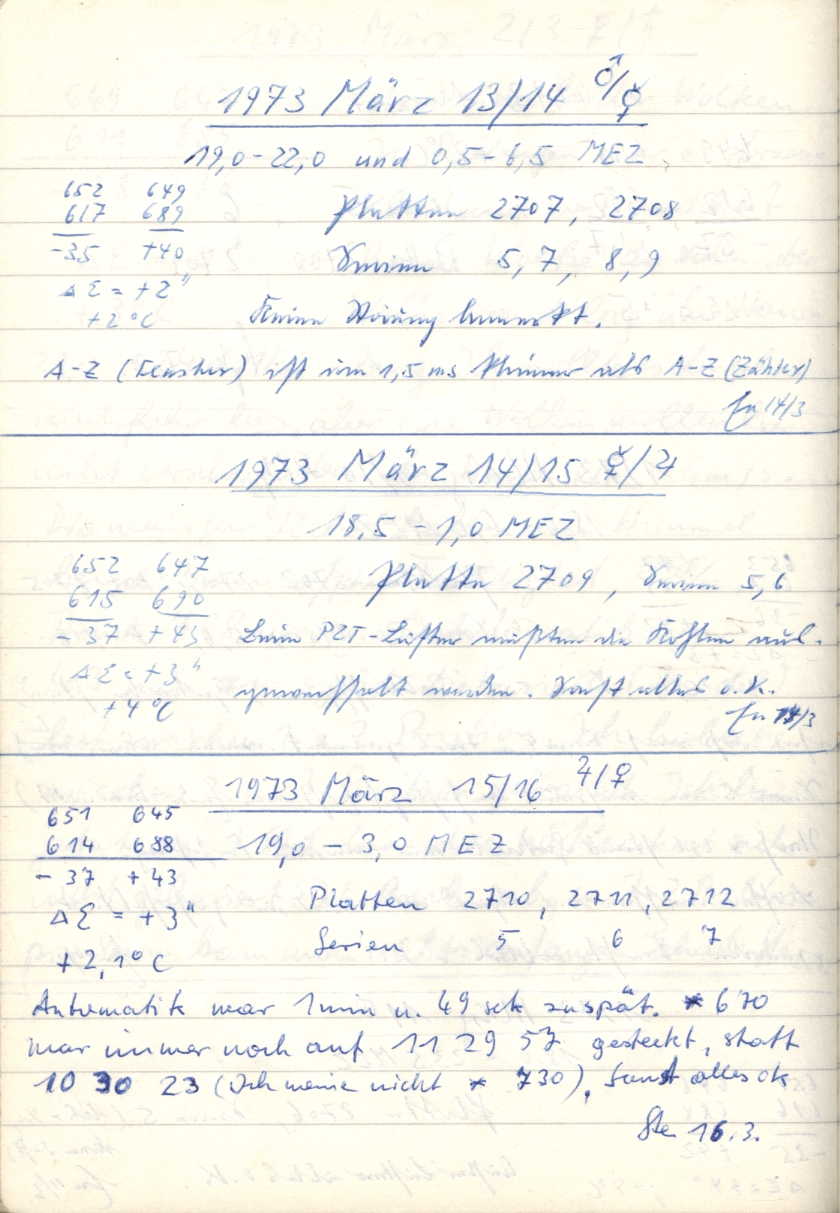 1973 März 13/14 ♂/☿
19,0-22,0 und 0,5-6,5 MEZ
652 649
617 689 Platten 2707, 2708
-35 +40 Serien 5, 7, 8, 9
ΔΣ = +2"
+2°C Keine Störung bemerkt.
A-Z (Flasher) ist um 1,5 ms kleiner als A-Z (Zähler)
14/3
1973 März 14/15 ☿/♃
18,5 - 1,0 MEZ
652 647 Platte 2709, Serien 5,6
615 690
-37 +43 Beim PZT-Lüfter mußten die Kohlen aus-
ΔΣ = +3" gewechselt werden. Sonst alles o.K.
+4°C
1973 März 15/16 ♃/♀
651 645
614 688 19,0 - 3,0 MEZ
-37 +43
ΔΣ = +3" Platten 2710, 2711, 2712
Serien 5 6 7
+2,1°C
Automatik war 1min u. 49 sek zu spät. * 670
war immer noch auf 11 29 57 gesteckt, statt
10 30 23 (Ich meine nicht * 730), Sonst alles ok
Ste 16.3.